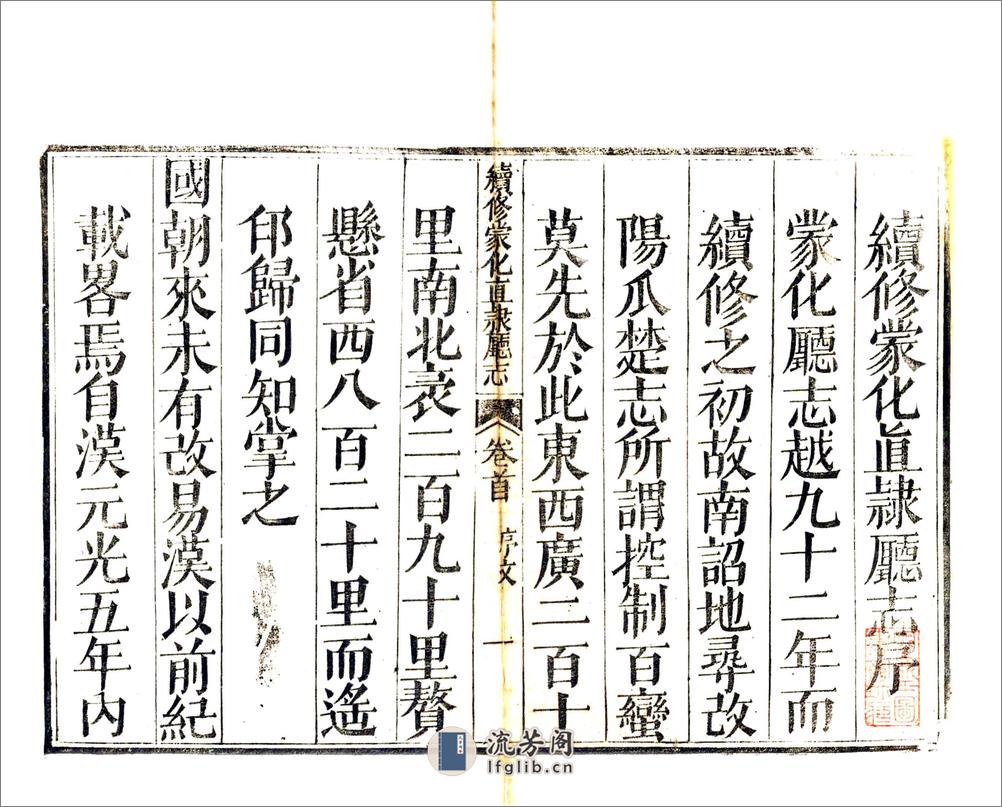 續修蒙化直隷廳志序
蒙化廳志越九十二年而
續修之初故南詔地尋改
陽瓜楚志所謂控制百蠻
莫先於此東西廣二百十
續修蒙化直隷廳志
卷首
序文
一
里南北袤二百九十里贅
懸省西八百二十里而遙
邙歸同知掌之
國朝來未有改易漢以前紀
載畧焉自漢元光五年內
流芳阁
lfglib.cn